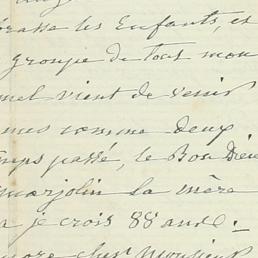 brasse les Enfants, et
groupe de tout mon
mel vient de venir
mes comme deux
mps passé, le Bon Dieu
marjolin la mère
a je crois 88 ans.
ore cher Monsieur